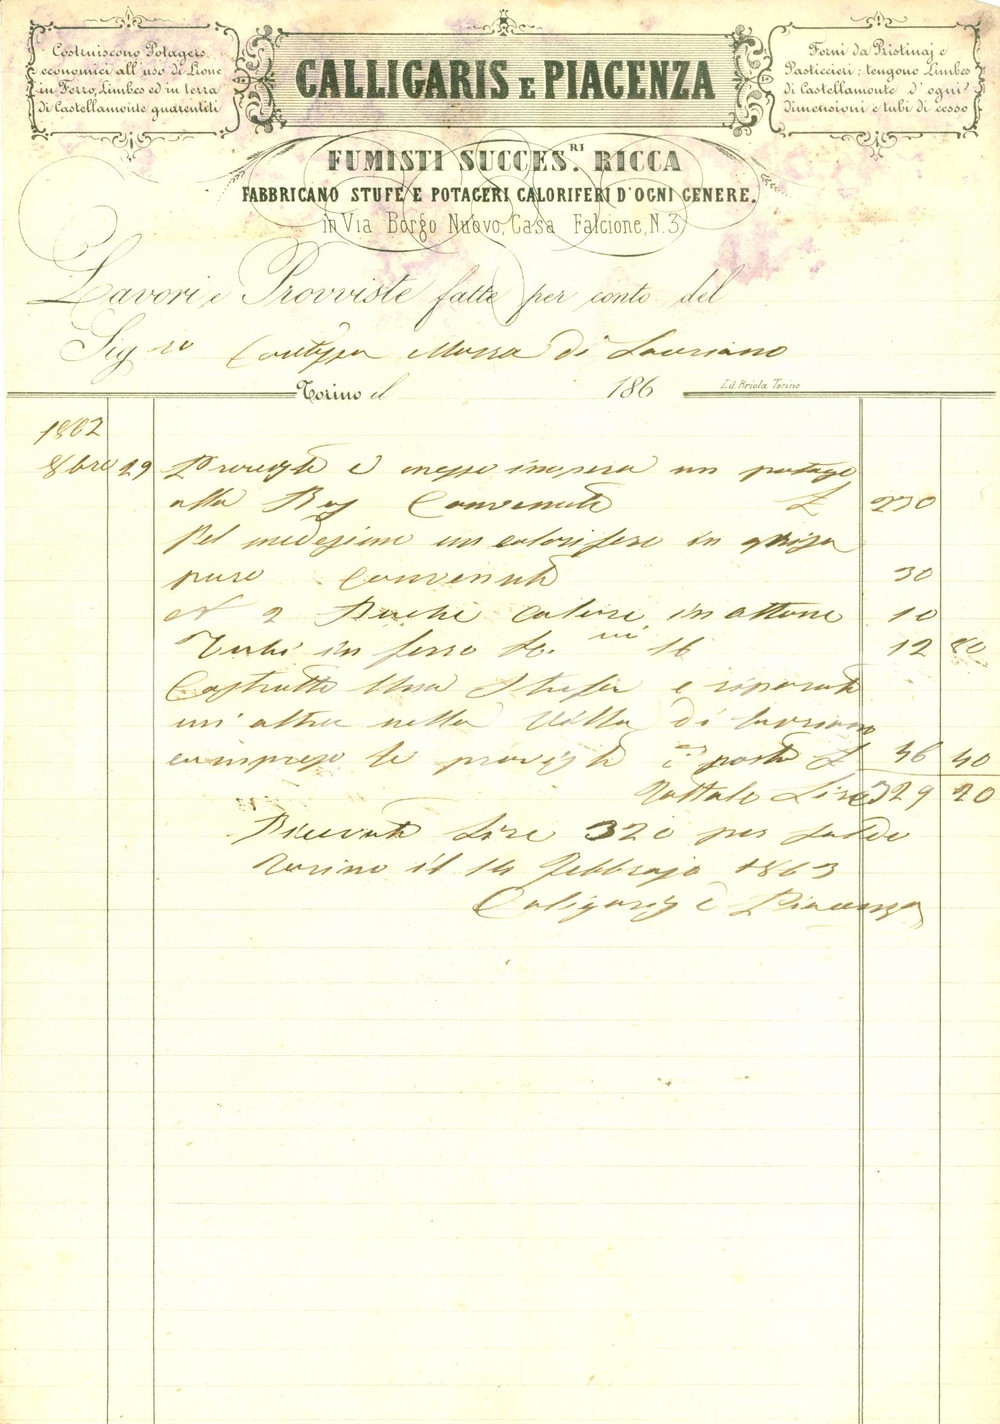 Costruiscono Potagers
economici all'uso di Lione
in Ferro, Limbes ed in terra
di Castellamonte guarentiti
CALLIGARIS E PIACENZA
Forni da Pristinaj e
Pasticcieri: tengono Limbes
di Castellamonte d'ogni
dimensioni e tubi di cesso
FUMISTI SUCCES.RI RICCA
FABBRICANO STUFE E POTAGERI CALORIFERI D'OGNI GENERE.
in Via Borgo Nuovo, Casa Falcione, N. 3
Lavori e Provviste fatte per conto del
Sig ra Contessa Massa di Lauriano
Torino il 186 Lit. Briola Torino
1862
8bre 29 e messo un potage
alla Convenuto £ 230
Pel medesimo un calorifero in ghisa
pure Convenuto 30
N 2 Buchi calore in ottone 10
Tubi in ferro 16 12 80
Costrutto Una Stufa e riparato
un'altra nella Villa di Lauriano
compreso le £ 46 40
Tottale Lire 329 20
Ricevuto Lire 320 per saldo
Torino il 14 Febbrajo 1863
Caligaris e Piacenza